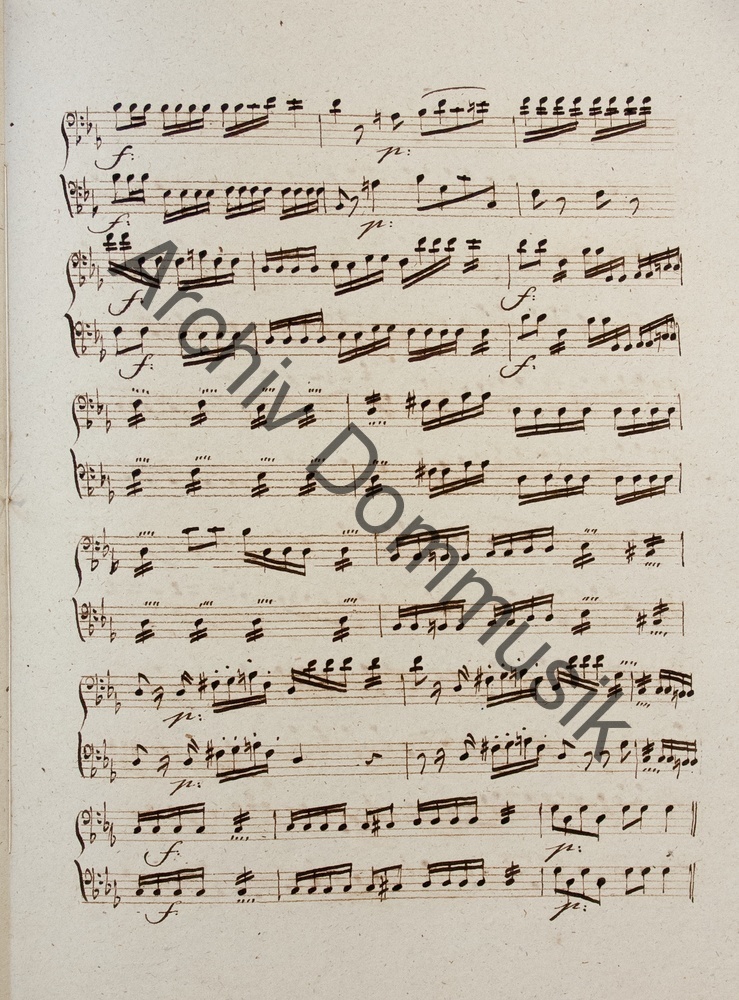 f:
p:
f:
p:
f:
f:
f:
f:
Archiv Dommusik
p:
p:
f:
p:
f:
p: